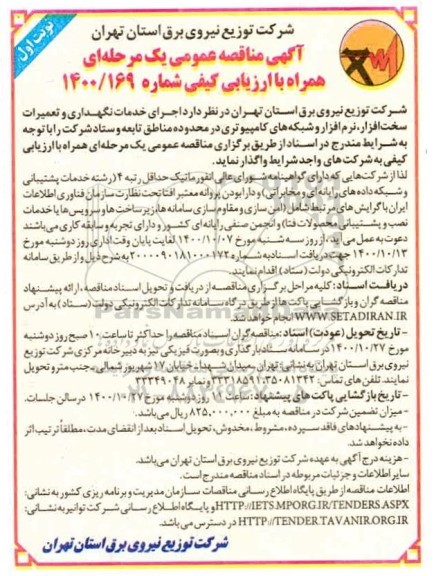 نوبت اول
شرکت توزیع نیروی برق استان تهران
آگهی مناقصه عمومی یک مرحله‌ای
همراه با ارزیابی کیفی شماره ۱۴۰۰/۱۶۹
شرکت توزیع نیروی برق استان تهران در نظر دارد اجرای خدمات نگهداری و تعمیرات
سخت‌افزار، نرم‌افزار و شبکه‌های کامپیوتری در محدوده مناطق تابعه و ستاد شرکت را با توجه
به شرایط مندرج در اسناد از طریق برگزاری مناقصه عمومی یک مرحله‌ای همراه با ارزیابی
کیفی به شرکت های واجد شرایط واگذار نماید.
لذا از شرکت‌هایی که دارای گواهینامه شورای عالی انفورماتیک حداقل رتبه ۴ (رشته خدمات پشتیبانی
و شبکه داده های رایانه ای و مخابراتی) و دارا بودن پروانه معتبر افتا تحت نظارت سازمان فناوری اطلاعات
ایران با گرایش های مرتبط شامل (امن سازی و مقاوم سازی سامانه ها، زیرساخت ها و سرویس ها یا خدمات
نصب و پشتیبانی محصولات فتا) و انجمن صنفی رایانه ای کشور و دارای تجربه و سابقه کاری می‌باشند
دعوت به عمل می آید، از روز سه شنبه مورخ ۱۴۰۰/۱۰/۰۷ لغایت پایان وقت اداری روز دوشنبه مورخ
۱۴۰۰/۱۰/۱۳ جهت دریافت اسناد به شماره ۲۰۰۰۰۹۰۱۸۱۰۰۰۱۷۲ به شرح ذیل و از طریق سامانه
تدارکات الکترونیکی دولت (ستاد) اقدام نمایند.
دریافت اسناد: کلیه مراحل برگزاری مناقصه از دریافت و تحویل اسناد مناقصه، ارائه پیشنهاد
مناقصه گران و بازگشایی پاکت ها از طریق درگاه سامانه تدارکات الکترونیکی دولت (ستاد) به آدرس
WWW.SETADIRAN.IR انجام خواهد شد.
- تاریخ تحویل (عودت) اسناد: مناقصه گران اسناد مناقصه را حداکثر تا ساعت ۱۰ صبح روز دوشنبه
مورخ ۱۴۰۰/۱۰/۲۷ در سامانه ستاد بارگذاری و بصورت فیزیکی نیز به دبیرخانه مرکزی شرکت توزیع
نیروی برق استان تهران به نشانی: تهران، میدان شهدا، خیابان ۱۷ شهریور شمالی، جنب مترو تحویل
نمایند. تلفن های تماس: ۳۵۰۸۱۳۴۲، ۳۳۳۱۸۵۹۱ و نمابر ۳۳۳۴۹۰۲۸
- تاریخ بازگشایی پاکت های پیشنهاد: ساعت ۱۲ روز دوشنبه مورخ ۱۴۰۰/۱۰/۲۷ در سالن جلسات.
- میزان تضمین شرکت در مناقصه به مبلغ ۸۲۵,۰۰۰,۰۰۰ ریال می‌باشد.
- به پیشنهادهای فاقد سپرده، مشروط، مخدوش، تحویل اسناد بعد از انقضای مدت، مطلقاً ترتیب اثر
داده نخواهد شد.
- هزینه درج آگهی به عهده شرکت توزیع نیروی برق استان تهران می‌باشد.
سایر اطلاعات و جزئیات مربوطه در اسناد مناقصه مندرج است.
اطلاعات مناقصه از طریق پایگاه اطلاع رسانی مناقصات سازمان مدیریت و برنامه ریزی کشور به نشانی:
HTTP://IETS.MPORG.IR/TENDERS.ASPX و پایگاه اطلاع رسانی شرکت توانیر به نشانی:
HTTP://TENDER.TAVANIR.ORG.IR در دسترس می باشد.
شرکت توزیع نیروی برق استان تهران